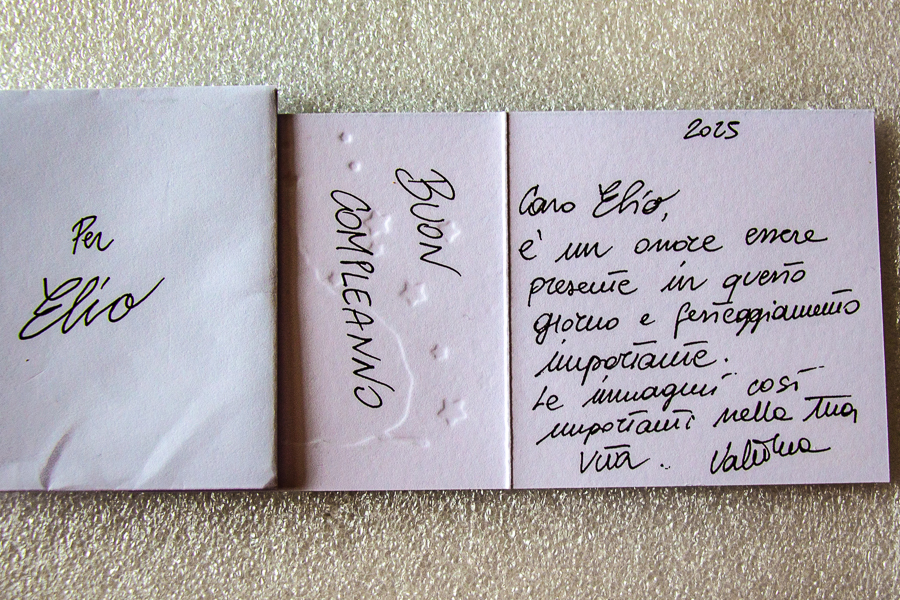 Per
Elio
BUON
COMPLEANNO
2025
Caro Elio,
è un onore essere
presente in questo
giorno e festeggiamento
importante.
Le immagini così
importanti nella tua
vita..